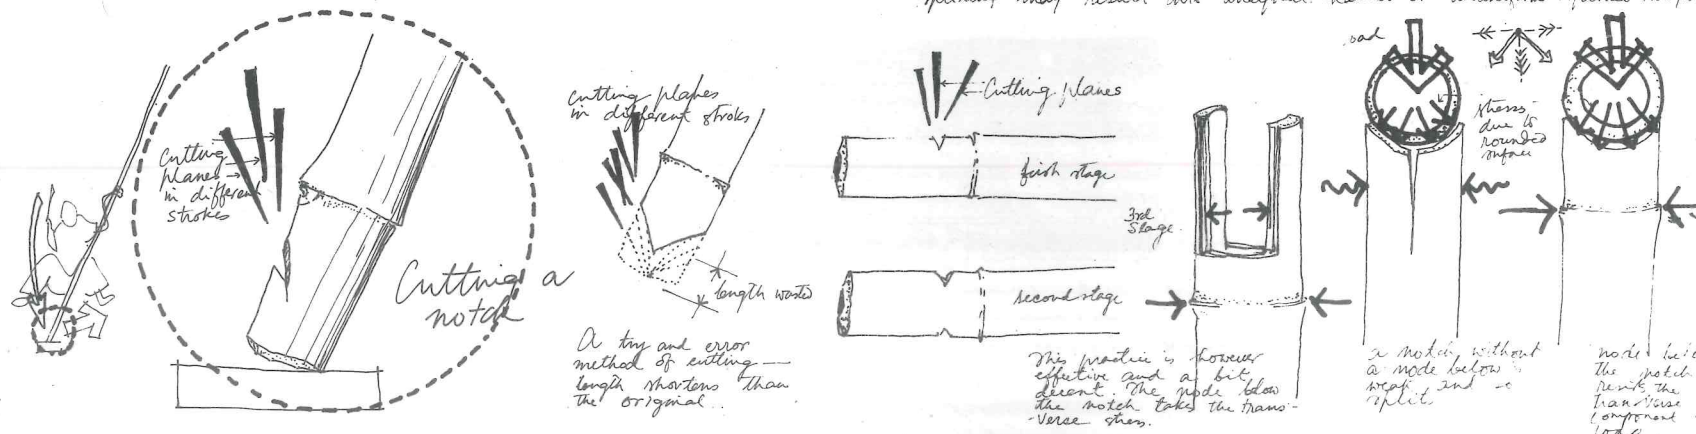 Cutting
planes
in different
strokes
Cutting a
notch
cutting planes
in different stroks
length wasted
A try and error
method of cutting —
length shortens than
the original..
Cutting planes
first stage
second stage
3rd
Stage.
This practice is however
effective and a bit
decent. The node blow
the notch takes the trans-
-verse stress.
oad
stresses
due to
rounded
surface
a notch without
a node below
weak and
split
node bel
the notch
the
transverse
component